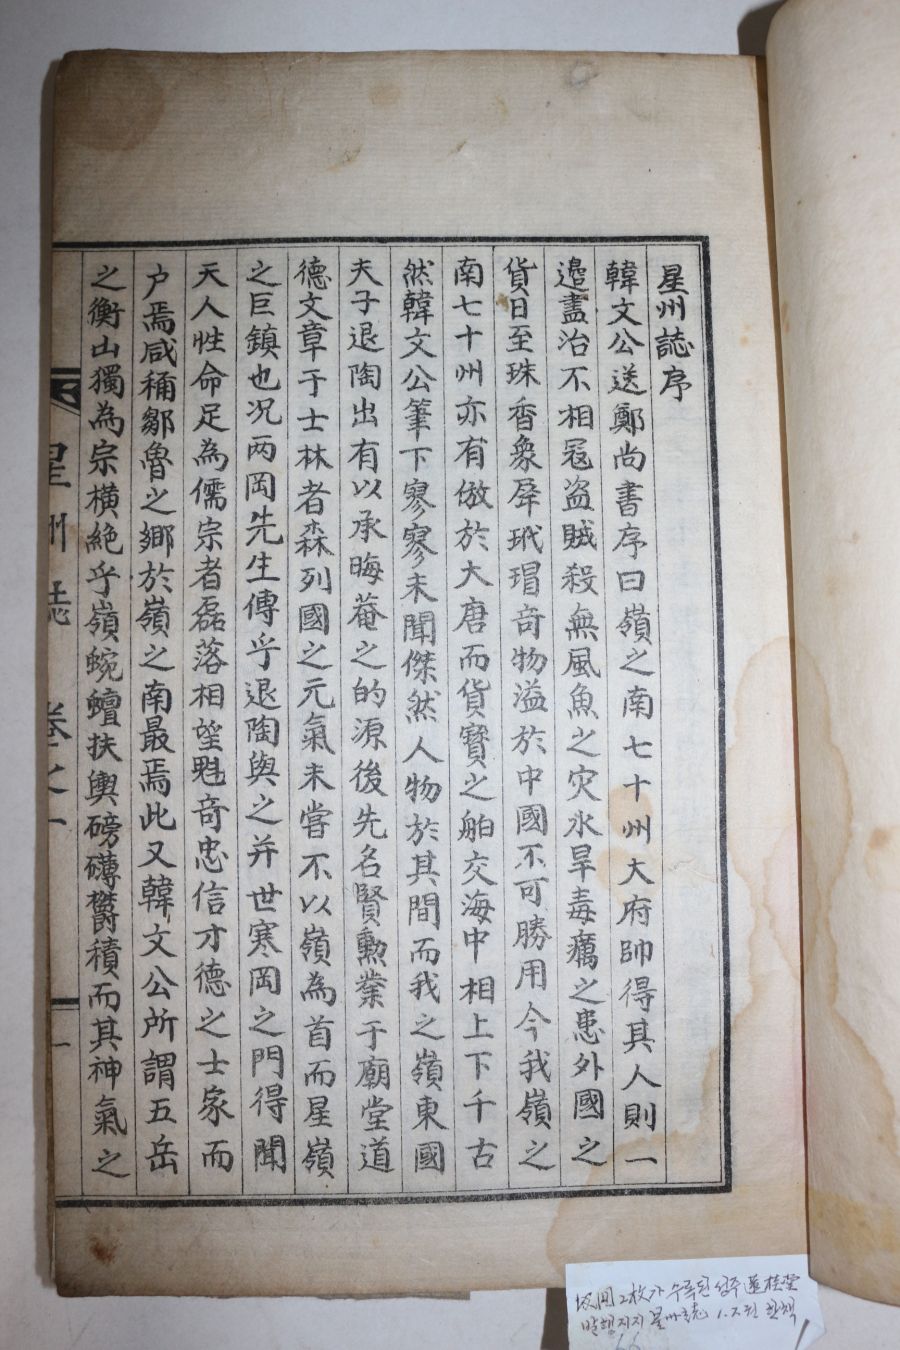 星州誌序
韓文公送鄭尚書序曰嶺之南七十州大府帥得其人則一
邊盡治不相冦盗賊殺無風魚之灾水旱毒癘之患外國之
貨日至珠香象犀玳瑁奇物溢於中國不可勝用今我嶺之
南七十州亦有倣於大唐而貨寳之舶交海中相上下千古
然韓文公筆下寥寥未聞傑然人物於其間而我之嶺東國
夫子退陶出有以承晦菴之的源後先名賢勲業于廟堂道
德文章于士林者森列國之元氣未嘗不以嶺為首而星嶺
之巨鎮也况两岡先生傳乎退陶與之并世寒岡之門得聞
天人性命足為儒宗者磊落相望魁奇忠信才德之士家而
户焉咸稱鄒魯之鄉於嶺之南最焉此又韓文公所謂五岳
之衡山獨為宗横絶乎嶺蜿蟺扶輿磅礴欝積而其神氣之
星州誌 卷之一 一
坂岡 2枚가 수록된 성주
발행 星州誌
66